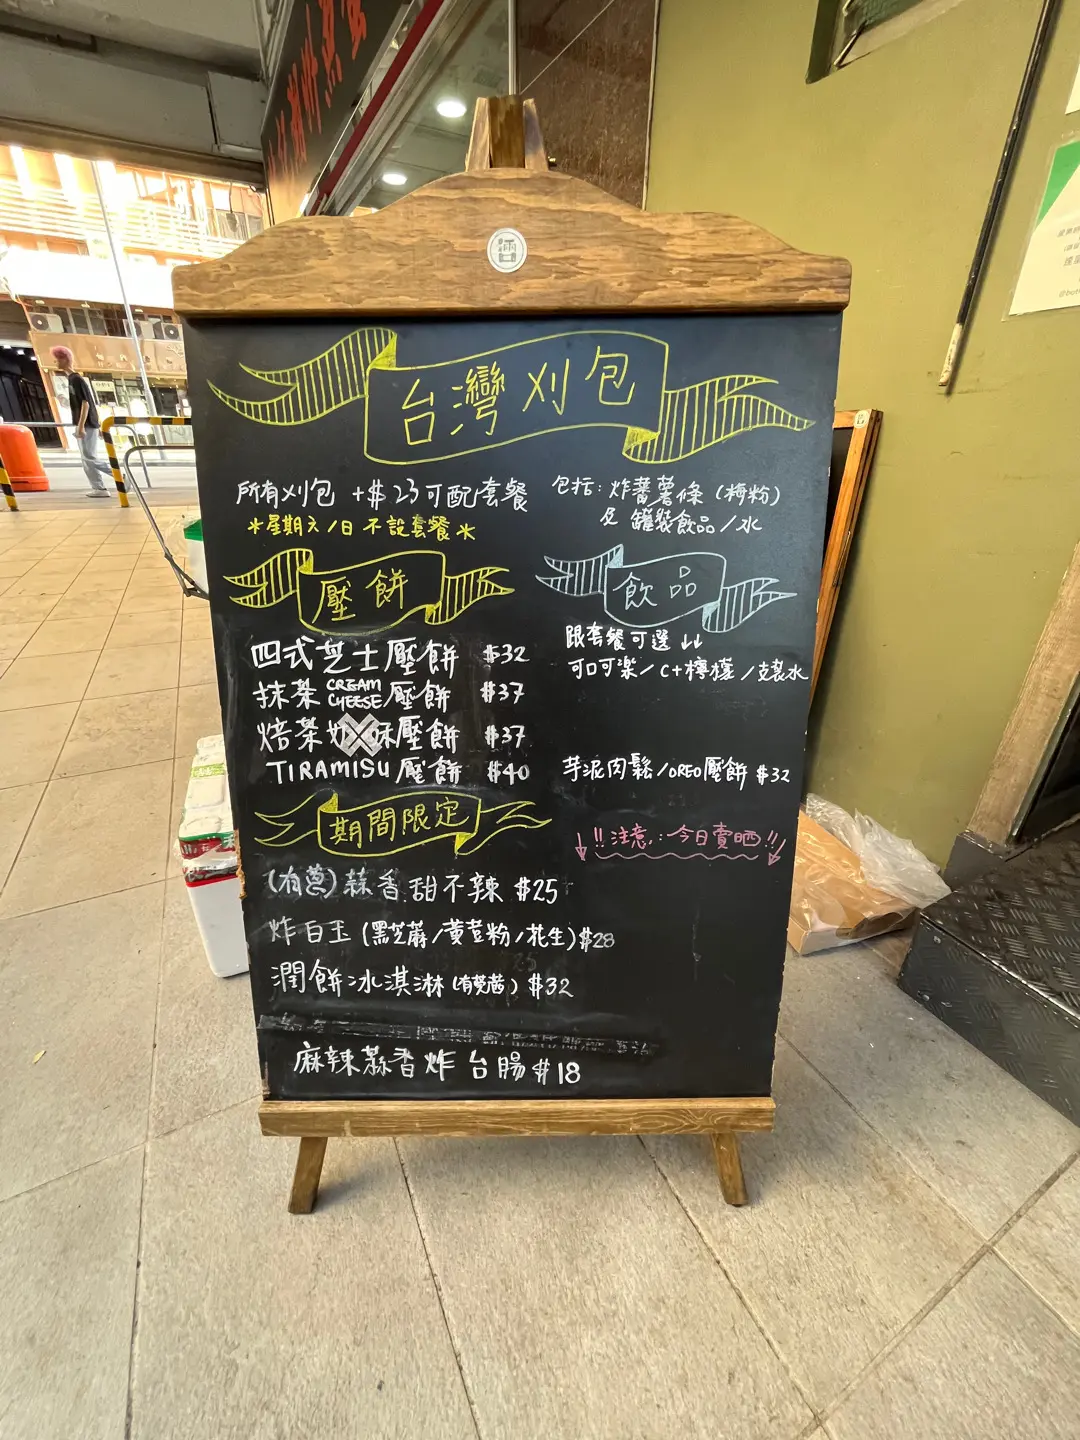 台灣刈包
所有刈包 +$23可配套餐
*星期六/日 不設套餐*
包括:炸蕃薯條(梅粉)
及 罐裝飲品/水
壓餅
四式芝士壓餅 $32
抹茶 CREAM CHEESE 壓餅 $37
焙茶 壓餅 $37
TIRAMISU 壓餅 $40
飲品
跟套餐可選 ↓↓
可口可樂/C+檸檬/支裝水
芋泥肉鬆/OREO壓餅 $32
期間限定
↓!!注意:今日賣晒!!↓
(有蔥)蒜香甜不辣 $25
炸白玉(黑芝蔴/黃荳粉/花生)$28
潤餅冰淇淋(有芫茜)$32
麻辣蒜香炸台腸$18